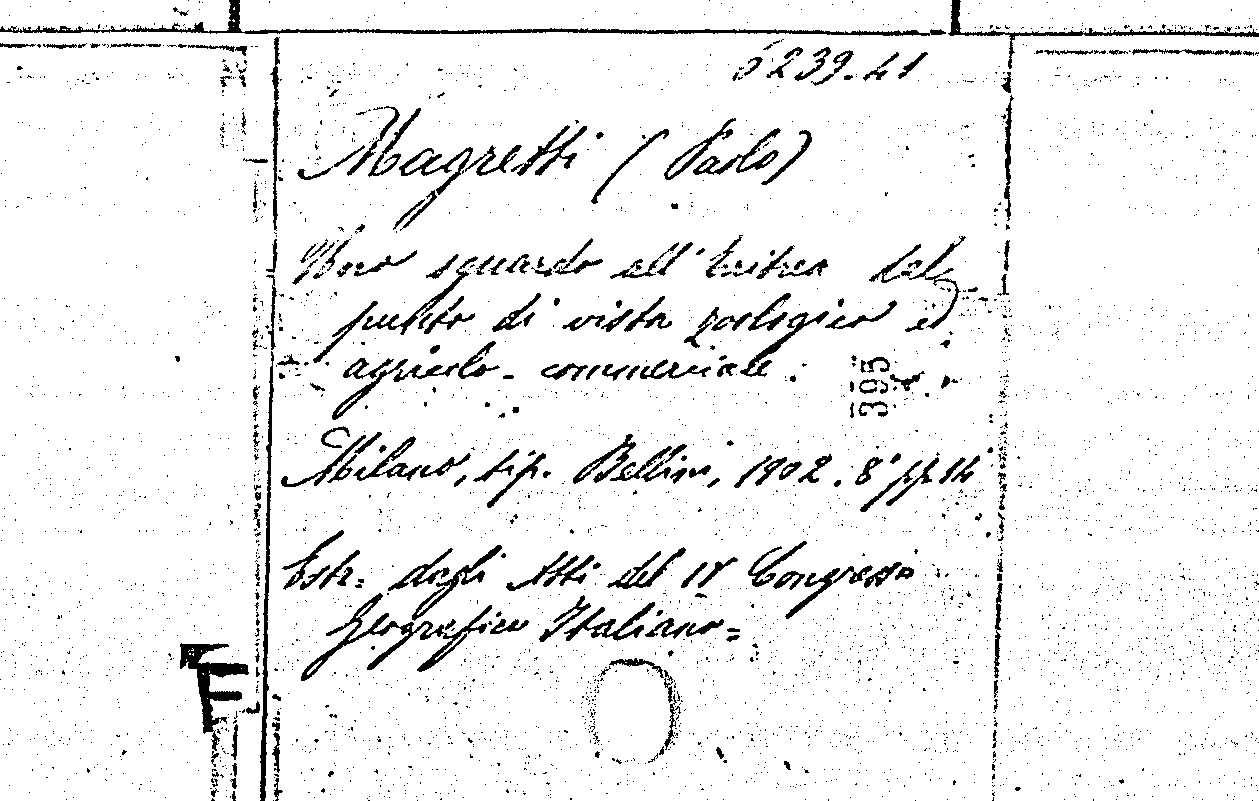 6239.41
Magretti (Paolo)
sguardo all'Eritrea dal
punto di vista zoologico ed
agricolo-commerciale.
395
Milano, tip. Bellini, 1902. 8° pp. 14
Estr. dagli Atti del IV Congresso
Geografico Italiano=